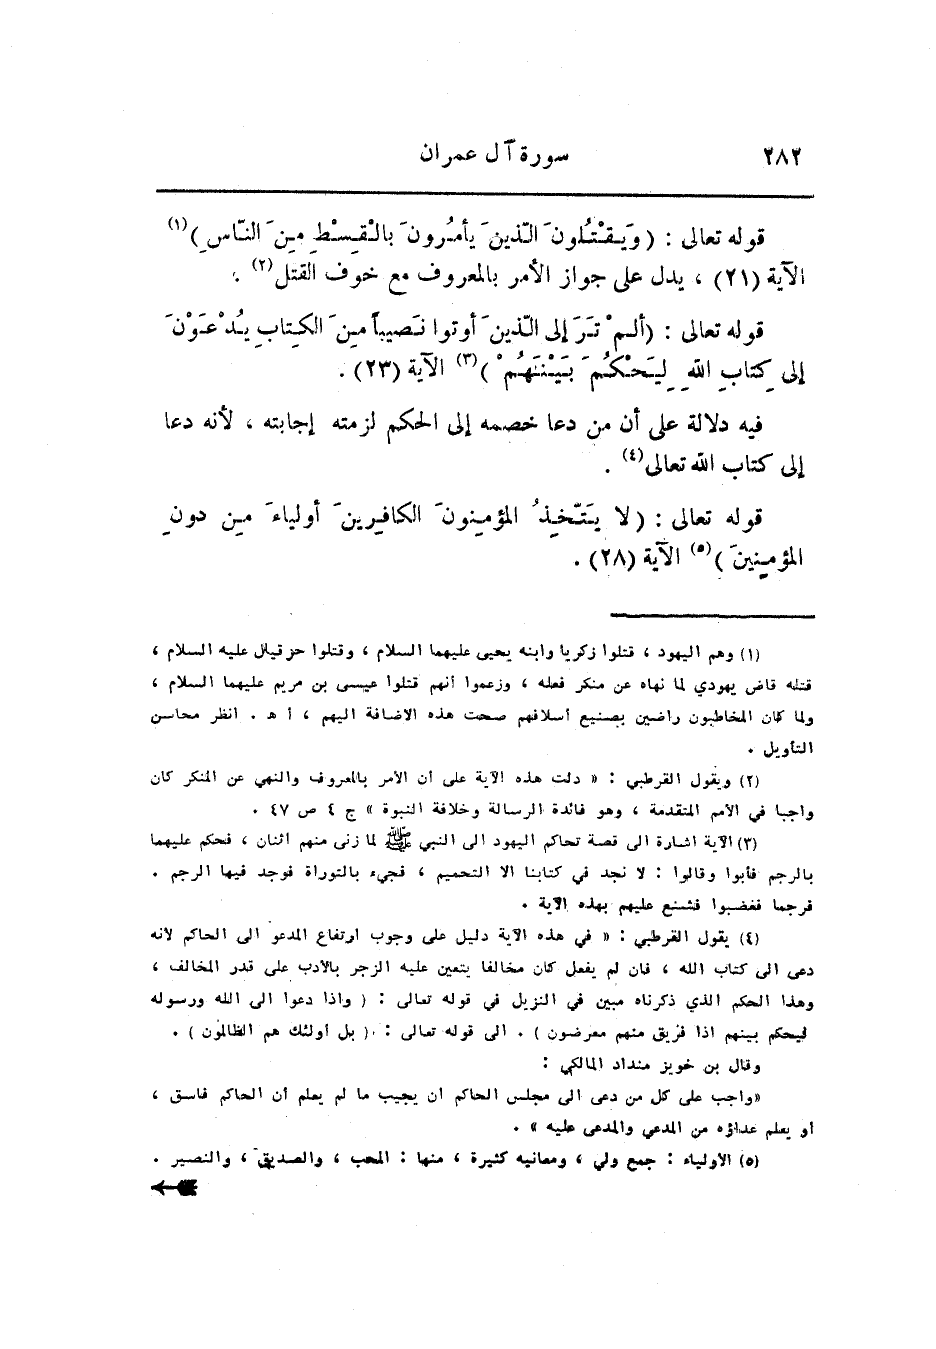 ٢٨٢ سورة آل عمران
قوله تعالى : ( وَيَقْتُلُونَ الّذينَ يأمُرونَ بالْقِسْطِ مِنَ النّاسِ )(١)
الآية (٢١) ، يدل على جواز الأمر بالمعروف مع خوف القتل(٢) .
قوله تعالى : (ألَمْ تَرَ إلى الّذينَ أوتوا نَصيباً مِنَ الكِتابِ يُدْعَوْنَ
إلى كِتابِ اللهِ لِيَحْكُمَ بَيْنَهُمْ )(٣) الآية (٢٣) .
فيه دلالة على أن من دعا خصمه إلى الحكم لزمته إجابته ، لأنه دعا
إلى كتاب الله تعالى(٤) .
قوله تعالى : ( لا يَتّخِذُ المؤمِنونَ الكافِرينَ أولياءَ مِن دونِ
المؤمِنينَ )(٥) الآية (٢٨) .
(١) وهم اليهود ، قتلوا زكريا وابنه يحيى عليهما السلام ، وقتلوا حزقيال عليه السلام ،
قتله قاض يهودي لما نهاه عن منكر فعله ، وزعموا أنهم قتلوا عيسى بن مريم عليهما السلام ،
ولما كان المخاطبون راضين بصنيع أسلافهم صحت هذه الاضافة اليهم ، أ هـ . أنظر محاسن
التأويل .
(٢) ويقول القرطبي : « دلت هذه الآية على أن الأمر بالمعروف والنهي عن المنكر كان
واجبا في الأمم المتقدمة ، وهو فائدة الرسالة وخلافة النبوة » ج ٤ ص ٤٧ .
(٣) الآية اشارة الى قصة تحاكم اليهود الى النبي ﷺ لما زنى منهم اثنان ، فحكم عليهما
بالرجم فأبوا وقالوا : لا نجد في كتابنا الا التحميم ، فجيء بالتوراة فوجد فيها الرجم .
فرجما فغضبوا فشنع عليهم بهذه الآية .
(٤) يقول القرطبي : « في هذه الآية دليل على وجوب ارتفاع المدعو الى الحاكم لأنه
دعى الى كتاب الله ، فان لم يفعل كان مخالفا يتعين عليه الزجر بالأدب على قدر المخالف ،
وهذا الحكم الذي ذكرناه مبين في النزيل في قوله تعالى : ( واذا دعوا الى الله ورسوله
ليحكم بينهم اذا فريق منهم معرضون ) . الى قوله تعالى : ( بل أولئك هم الظالمون ) .
وقال بن خويز منداد المالكي :
«واجب على كل من دعى الى مجلس الحاكم أن يجيب ما لم يعلم أن الحاكم فاسق ،
أو يعلم عداؤه من المدعي والمدعى عليه » .
(٥) الأولياء : جمع ولي ، ومعانيه كثيرة ، منها : المحب ، والصديق ، والنصير .